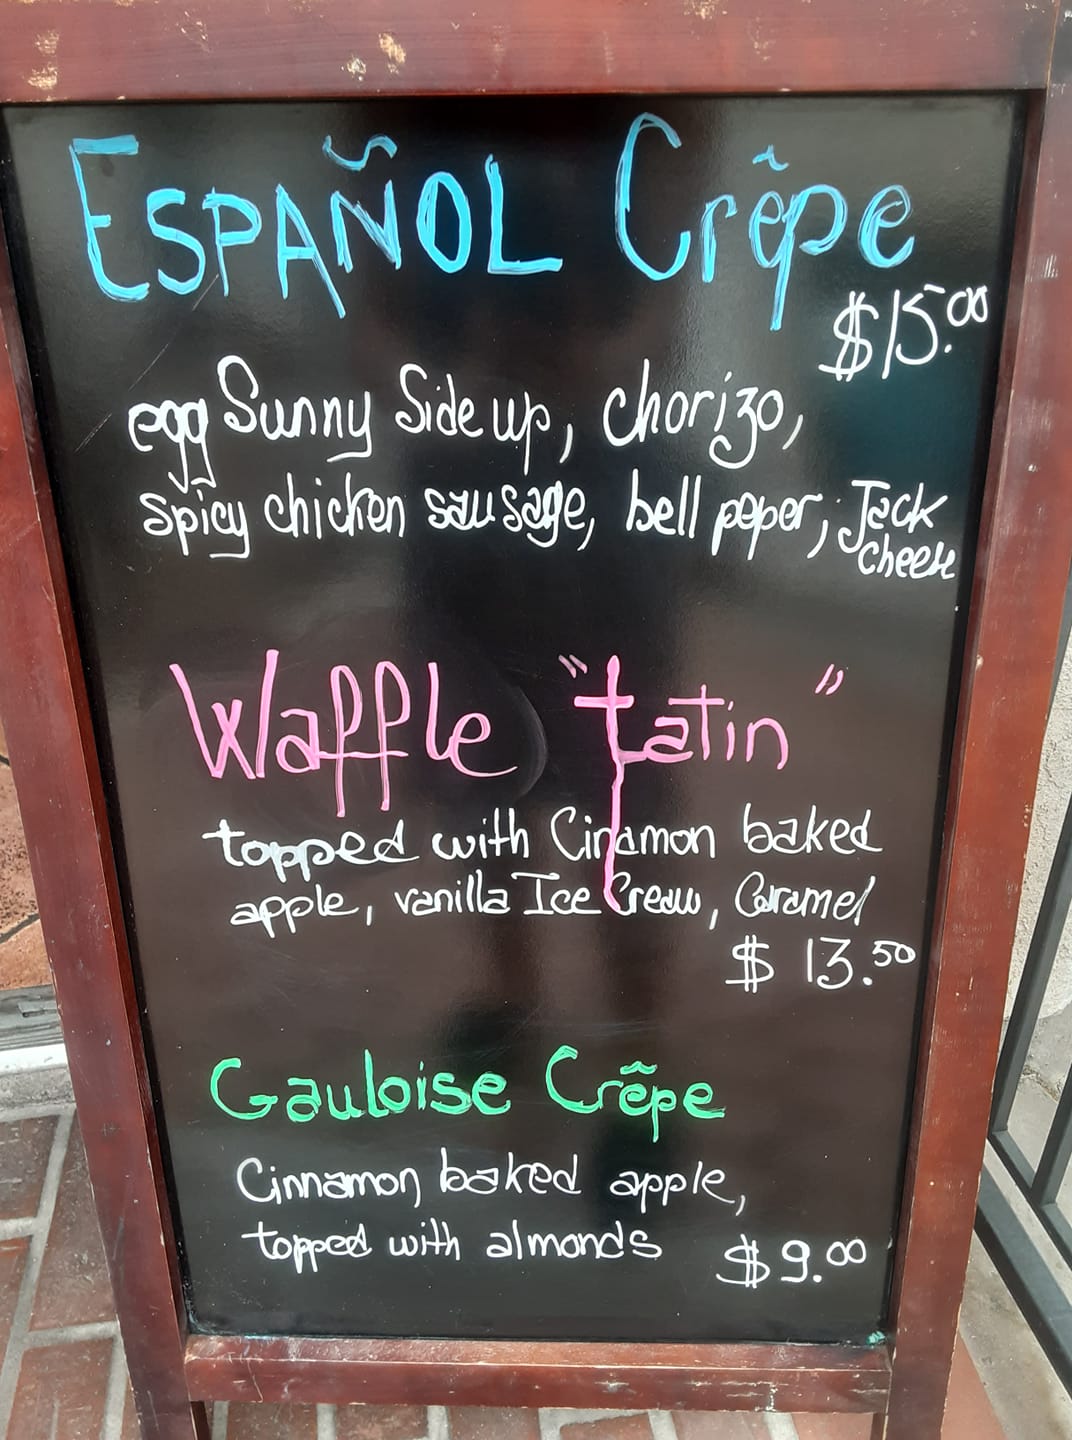 ESPAÑOL Crêpe
$15.00
egg Sunny Side up, chorizo,
spicy chicken sausage, bell peper, Jack
cheese
Waffle "tatin"
topped with Cinamon baked
apple, vanilla Ice Cream, Caramel
$ 13.50
Gauloise Crêpe
Cinnamon baked apple,
topped with almonds $9.00